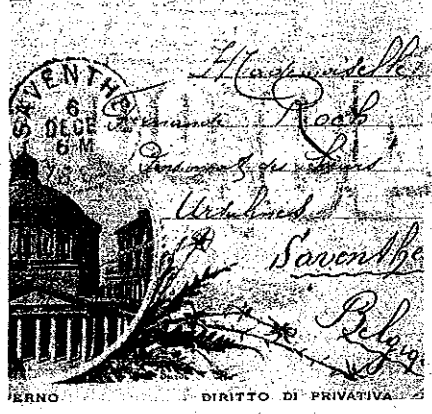 SAVENTHE
6
DECE
6 M
Mademoiselle
Fernande Roch
Pensionnat des
Ursulines
Saventhe
Belgiq
ERNO DIRITTO DI PRIVATIVA